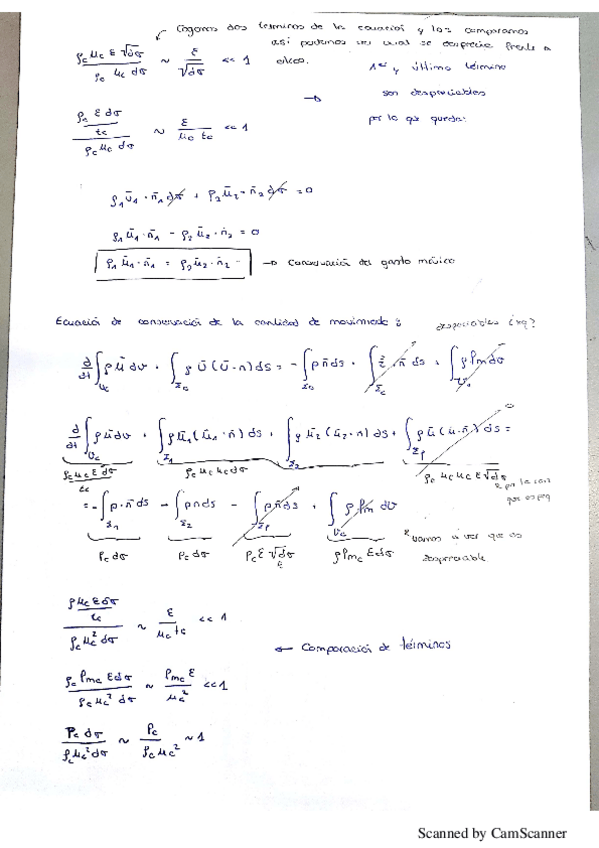 Cogemos dos términos de la ecuación y los comparamos
así podemos ver cual se desprecia frente a
otros.
ρc μc ε √dσ / ρc μc dσ ~ ε / √dσ << 1
1er y último término
→ son despreciables
por lo que queda:
ρc ε dσ / tc / ρc μc dσ ~ ε / μc tc << 1
ρ1 ū1 · n̄1 dσ + ρ2 ū2 · n̄2 dσ = 0
ρ1 ū1 · n̄1 - ρ2 ū2 · n̄2 = 0
ρ1 ū1 · n̄1 = ρ2 ū2 · n̄2 → Conservación del gasto másico
Ecuación de conservación de la cantidad de movimiento:
despreciables ¿xq?
∂/∂t ∫Vc ρ ū dv + ∫Σc ρ ū (ū · n) ds = - ∫Σc p n ds + ∫Σc τ̄ · n̄ ds + ∫Vc ρ fm dv
∂/∂t ∫Vc ρ ū dv + ∫Σ1 ρ ū1 (ū1 · n̄) ds + ∫Σ2 ρ ū2 (ū2 · n) ds + ∫Σp ρ ū (u · n̄) ds = 0
ρc μc ε dσ / tc
ρc μc μc dσ
ρc μc μc ε √dσ
= - ∫Σ1 p · n̄ ds - ∫Σ2 p n ds - ∫Σp p n̄ ds + ∫Vc ρ fm dv
Pc dσ
Pc dσ
Pc ε √dσ
ρ fmc ε dσ
* vamos a ver que es
despreciable
ρ μc ε dσ / tc / ρc μc² dσ ~ ε / μc tc << 1
← Comparación de términos
ρc fmc ε dσ / ρc μc² dσ ~ fmc ε / μc² << 1
Pc dσ / ρc μc² dσ ~ Pc / ρc μc² ~ 1
Scanned by CamScanner